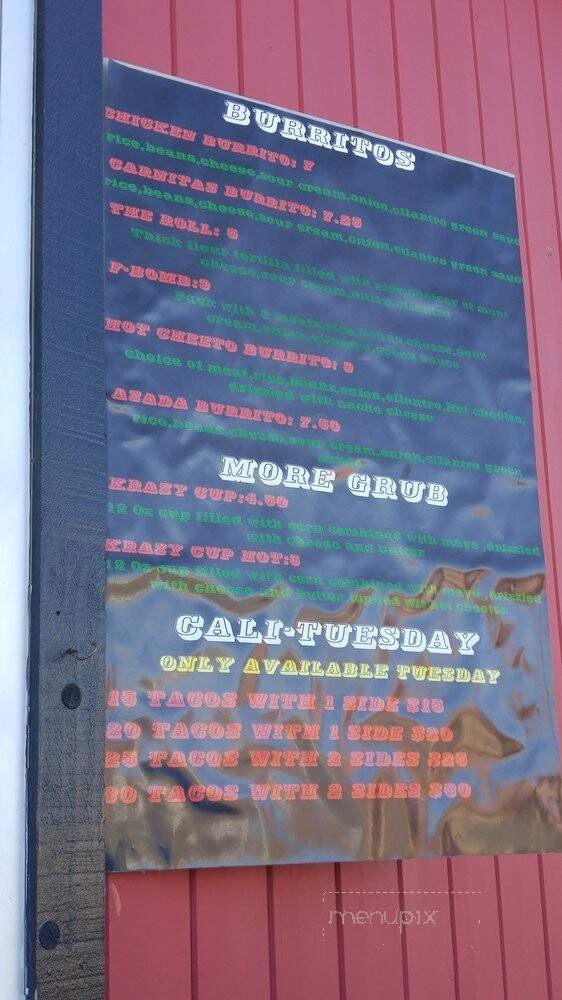 BURRITOS
CHICKEN BURRITO: 7
rice,beans,cheese,sour cream,onion,cilantro green sauc
CARNITAS BURRITO: 7.25
rice,beans,cheese,sour cream,onion,cilantro green sauc
THE ROLL:
Thick flour tortilla filled with rice,choicer of meat
cheese,sour cream,onion,cilantro
F-BOMB:9
Pack with 3 meats,rice,beans,cheese,sour
cream,onion,cilantro,green sauce
HOT CHEETO BURRITO: 9
choice of meat,rice,beans,onion,cilantro,Hot cheetos,
drizzled with nacho cheese
ASADA BURRITO: 7.50
rice,beans,cheese,sour cream,onion,cilantro green
MORE GRUB
KRAZY CUP:4.50
12 Oz cup filled with corn combined with mayo ,drizzled
with cheese and butter
KRAZY CUP HOT:
12 Oz cup filled with corn combined with mayo ,drizzled
with cheese and butter,topped wit hot cheetos
CALI-TUESDAY
ONLY AVAILABLE TUESDAY
15 TACOS WITH 1 SIDE $15
20 TACOS WITH 1 SIDE $20
25 TACOS WITH 2 SIDES $25
TACOS WITH 2 SIDES
menupix